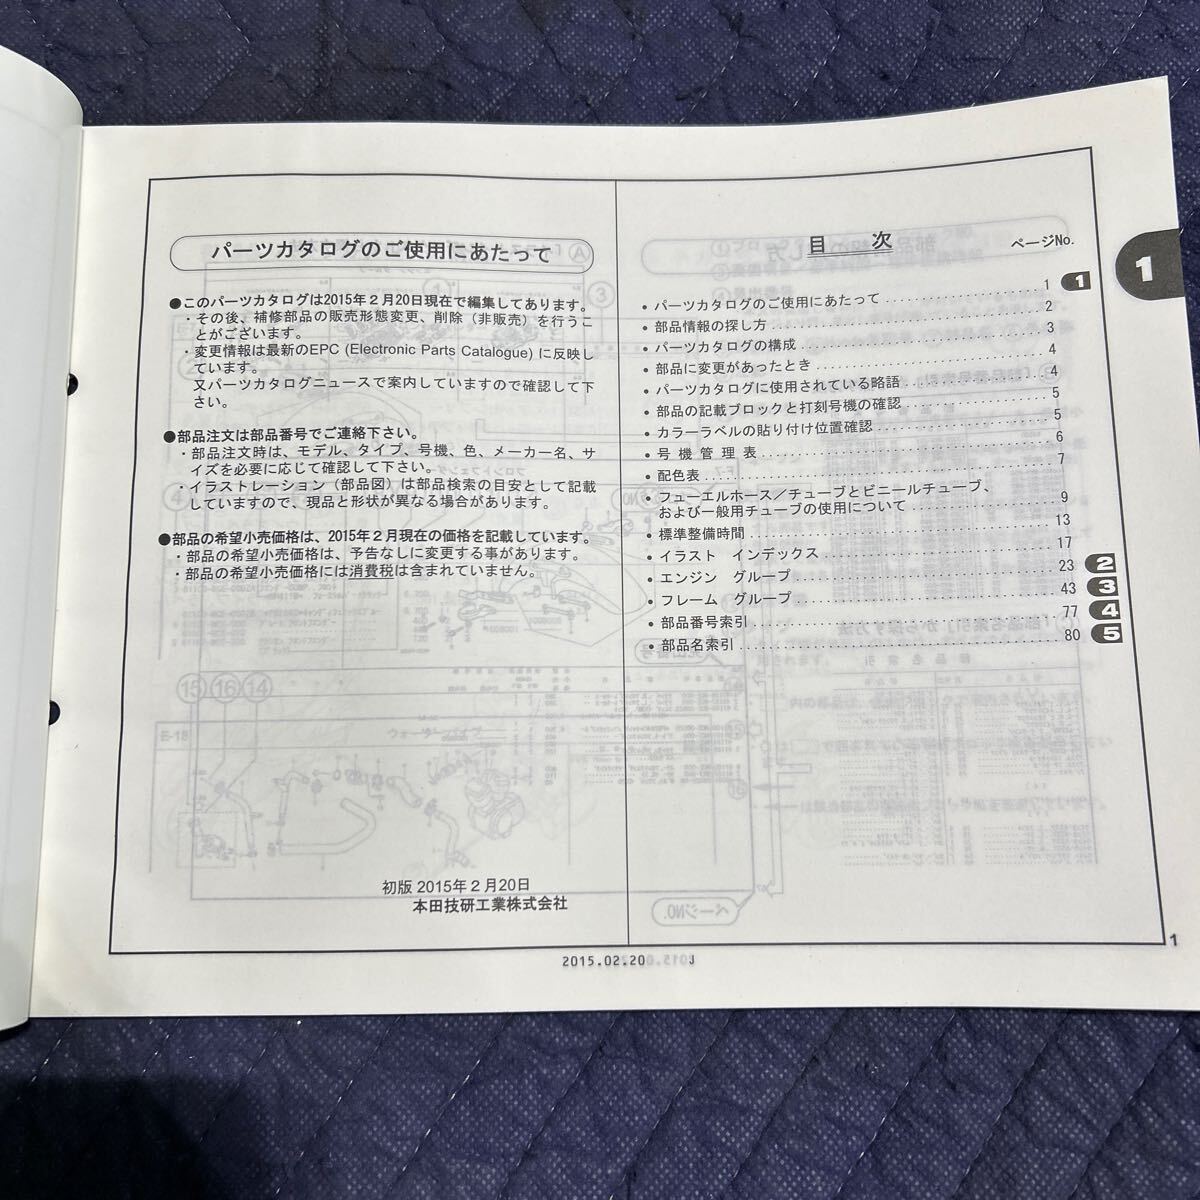 パーツカタログのご使用にあたって
●このパーツカタログは2015年2月20日現在で編集してあります。
・その後、補修部品の販売形態変更、削除（非販売）を行うこ
とがございます。
・変更情報は最新のEPC (Electronic Parts Catalogue) に反映し
ています。
又パーツカタログニュースで案内していますので確認して下
さい。
●部品注文は部品番号でご連絡下さい。
・部品注文時は、モデル、タイプ、号機、色、メーカー名、サ
イズを必要に応じて確認して下さい。
・イラストレーション（部品図）は部品検索の目安として記載
していますので、現品と形状が異なる場合があります。
●部品の希望小売価格は、2015年2月現在の価格を記載しています。
・部品の希望小売価格は、予告なしに変更する事があります。
・部品の希望小売価格には消費税は含まれていません。
初版 2015年2月20日
本田技研工業株式会社
目 次 ページNo.
・パーツカタログのご使用にあたって 1 1
・部品情報の探し方 2
・パーツカタログの構成 3
・部品に変更があったとき 4
・パーツカタログに使用されている略語 4
・部品の記載ブロックと打刻号機の確認 5
・カラーラベルの貼り付け位置確認 5
・号機管理表 6
・配色表 7
・フューエルホース／チューブとビニールチューブ、
および一般用チューブの使用について 9
・標準整備時間 13
・イラスト インデックス 17
・エンジン グループ 23 2
・フレーム グループ 43 3
・部品番号索引 77 4
・部品名索引 80 5
1
2015.02.20 J
1